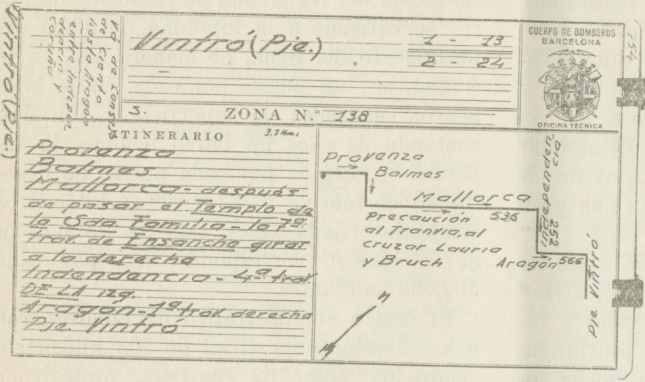 Vintró (Pje.)
Va de Consejo
de Ciento
hasta Aragón
entre Indepen
dencia y
Coriño
Vintró (Pje.)
1 - 13
2 - 24
CUERPO DE BOMBEROS
BARCELONA
OFICINA TECNICA
S.
ZONA N.º 138
ITINERARIO
3.7 Km.
Provenza
Balmes
Mallorca - después
de pasar el Templo de
la Gda. Familia - la 7ª
trav. de Ensanche girar
a la derecha
Indendencia - 4ª trav.
DE LA izq.
Aragón - 1ª trav. derecha
Pje. Vintró
Provenza
Balmes
Mallorca
536
Precaución
al Tranvia, al
cruzar Lauria
y Bruch
Independencia
252
Aragón 566
Pje Vintró
n
154